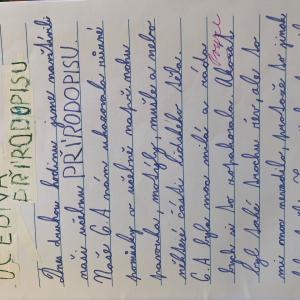 UČEBNA
PŘÍRODOPISU
Dnes druhou hodinu jsme navštívili
naši učebnu PŘÍRODOPISU.
Naše 6.A nám ukazovala různé
pomůcky v učebně například
pavouka, motýly, mušle a nebo
některé části lidského těla.
6.A byla moc milá a ráda
bych si to zopakovala. Akorát
byl také trochu řev, ale to
mi moc nevadilo, protože to jinak